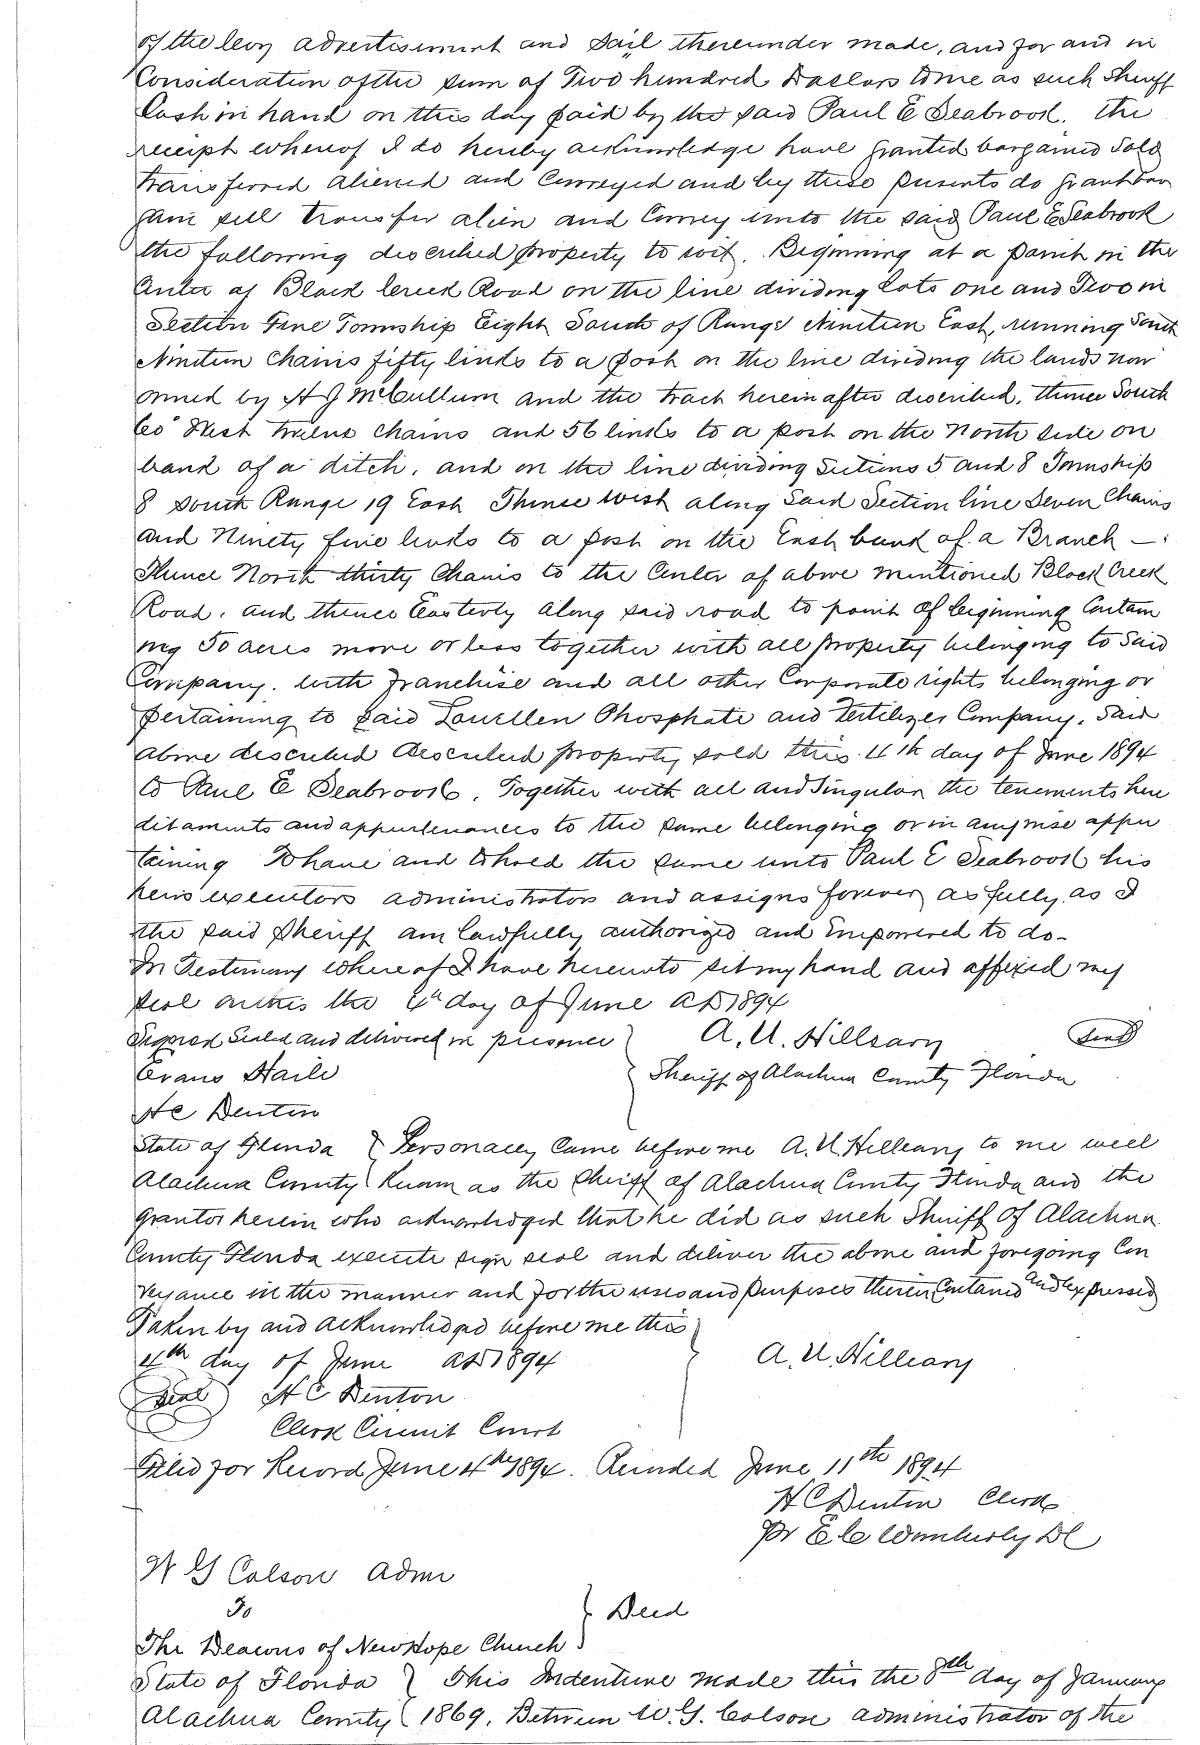 of the levy advertisement and sail thereunder made, and for and in
Consideration of the sum of Two hundred Dollars to me as such Sheriff
Cash in hand on this day paid by the said Paul E Seabrook. the
receipt whereof I do hereby acknowledge have granted bargained Sold
transferred aliened and Conveyed and by these presents do grant bar
gain sell transfer alien and Convey unto the said Paul E Seabrook
the following described property to wit. Beginning at a point in the
Center of Black Creek Road on the line dividing Lots one and Two in
Section Five Township Eight South of Range Nineteen East, running South
Nineteen Chains fifty links to a post on the line dividing the lands now
owned by A J McCullum and the tract herein after described, thence South
60° West twelve Chains and 56 links to a post on the North side on
bank of a ditch, and on the line dividing Sections 5 and 8 Township
8 South Range 19 East Thence West along Said Section line Seven Chains
and Ninety five links to a post on the East bank of a Branch —
Thence North thirty Chains to the Center of above mentioned Black Creek
Road. and thence Easterly along said road to point of beginning Contain
ing 50 acres more or less together with all property belonging to Said
Company. with franchise and all other Corporate rights belonging or
pertaining to said Lewellen Phosphate and Fertilizer Company. Said
above described described property sold this 4th day of June 1894
to Paul E Seabrook. Together with all and Singular the tenements here
ditaments and appurtenances to the same belonging or in anywise apper
taining To have and to hold the same unto Paul E Seabrook his
heirs executors administrators and assigns forever as fully as I
the said Sheriff am lawfully authorized and Empowered to do-
In Testimony Whereof I have hereunto set my hand and affixed my
seal on this the 4th day of June AD 1894
Signed Sealed and delivered in presence A. U. Hilleary Seal
Evans Haile Sheriff of Alachua County Florida
H C Denton
State of Florida Personally Came before me A. U. Hilleary to me well
Alachua County Known as the Sheriff of Alachua County Florida and the
grantor herein who acknowledged that he did as such Sheriff of Alachua
County Florida execute sign seal and deliver the above and foregoing Con
veyance in the manner and for the uses and purposes therein Contained and expressed
Taken by and acknowledged before me this
4th day of June AD 1894 A. U. Hilleary
Seal H C Denton
Clerk Circuit Court
Filed for Record June 4th 1894. Recorded June 11th 1894
H C Denton Clerk
Pr E C Wimberly DC
W G Colson Admr
To
Deed
The Deacons of New Hope Church
State of Florida This Indenture made this the 8th day of January
Alachua County 1869. Between W. G. Colson administrator of the